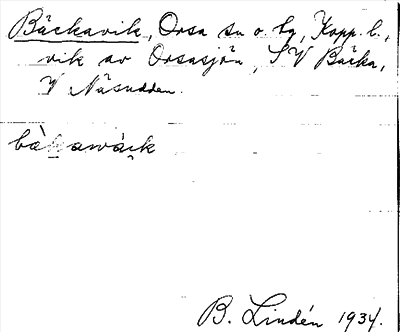 Bäckavik, Orsa sn o. tg, Kopp. l.,
vik av Orsasjön, SV Bäcka,
V Näsudden.
bàkawåik
B. Lindén 1934.